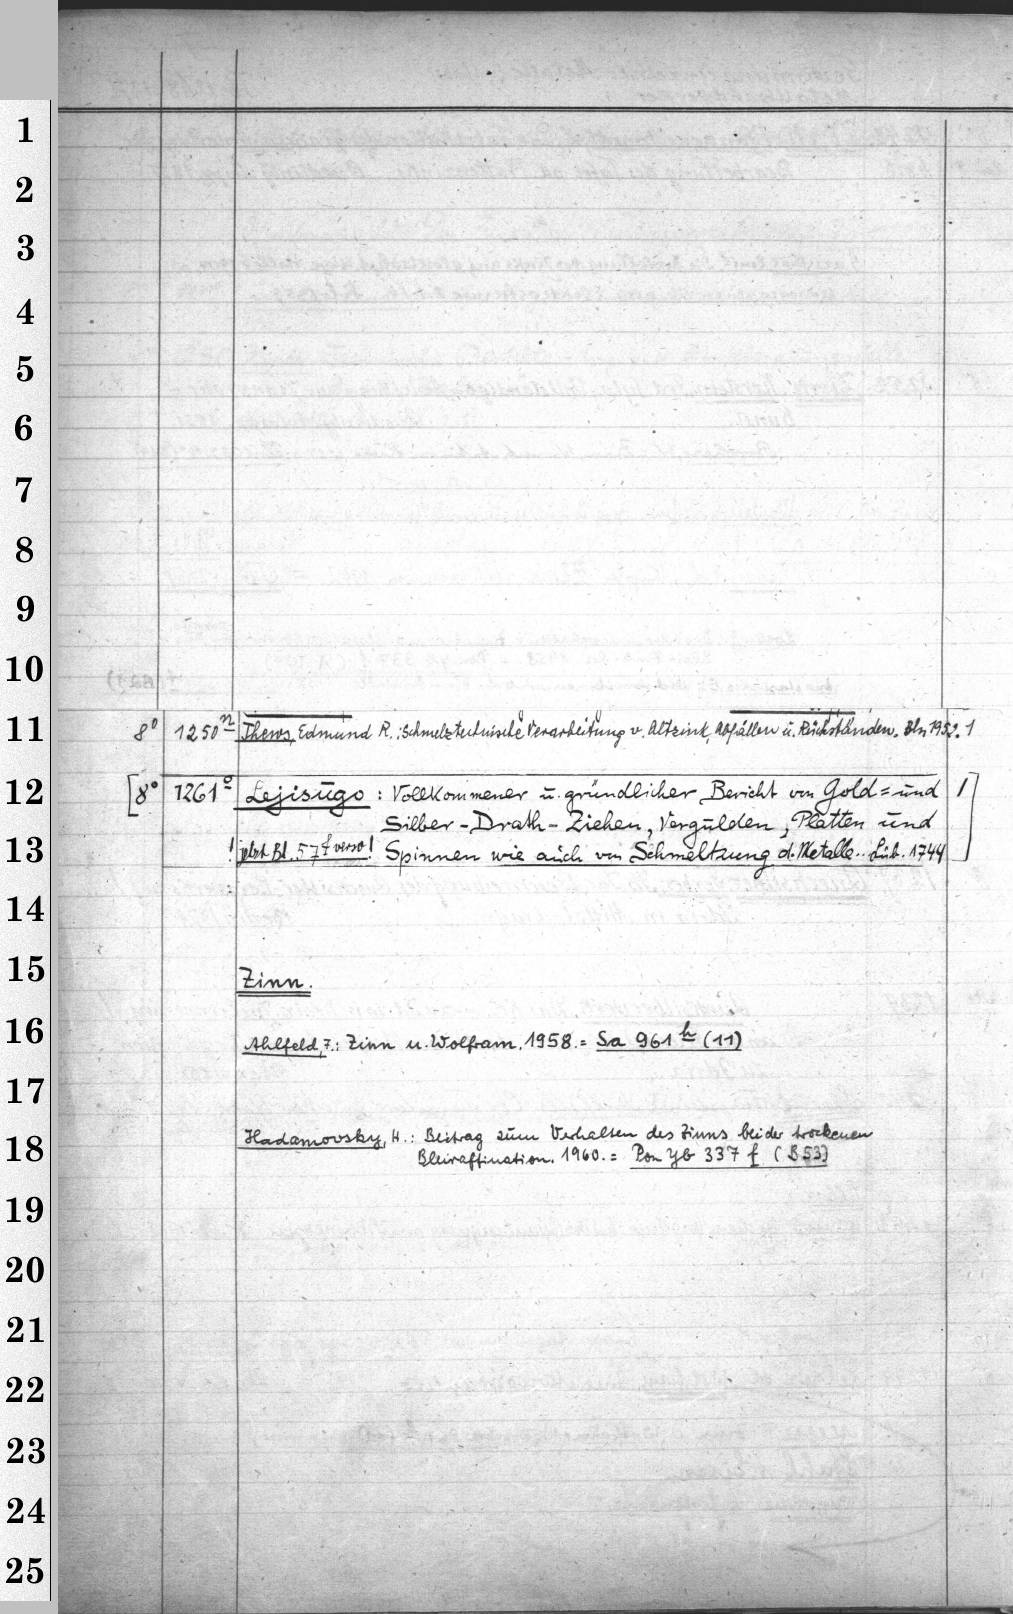 1
2
3
4
5
6
7
8
9
10
11
8° 1250 n Thews, Edmund R.: Schmelztechnische Verarbeitung v. Altzink, Abfällen u. Rückständen. Bln 1952. 1
12
[8° 1261 o Lejisugo : Vollkommener u. gründlicher Bericht von Gold= und 1]
Silber-Drath-Ziehen, Vergulden, Platten und
13
! jetzt Bl. 57 f verso! Spinnen wie auch von Schmeltzung d. Metalle.. Lüb. 1744
14
15
Zinn.
16
Ahlfeld, F.: Zinn u. Wolfram. 1958. = Sa 961 h (11)
17
18
Hadamovsky, H.: Beitrag zum Verhalten des Zinns bei der trockenen
Bleiraffination. 1960. = Pon Yb 337 f (B53)
19
20
21
22
23
24
25